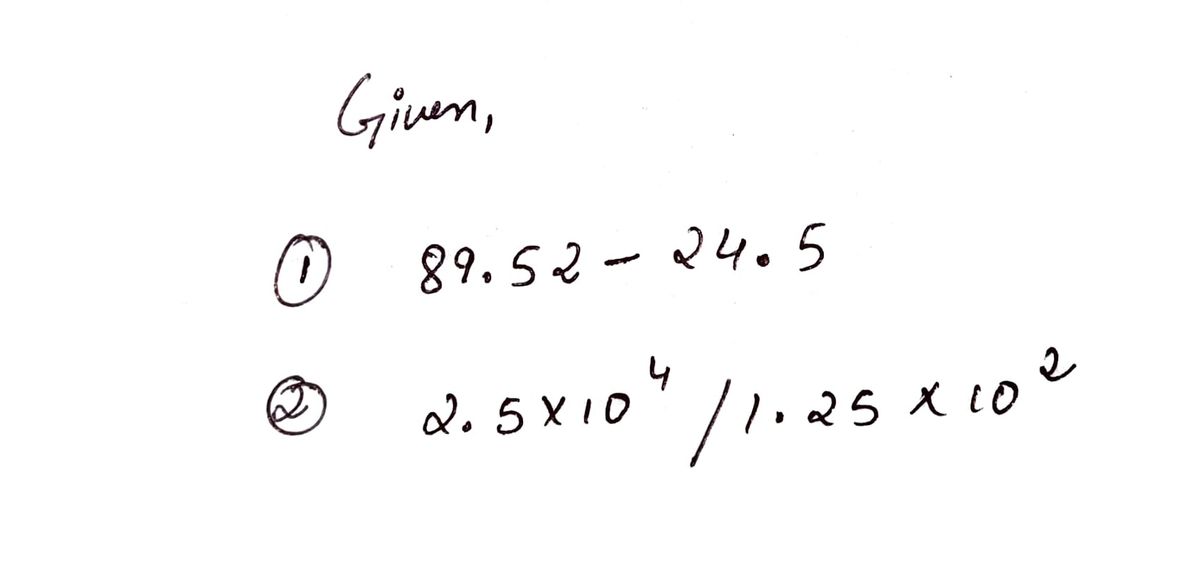 Given,
① 89.52 - 24.5
② 2.5 x 10⁴ / 1.25 x 10²